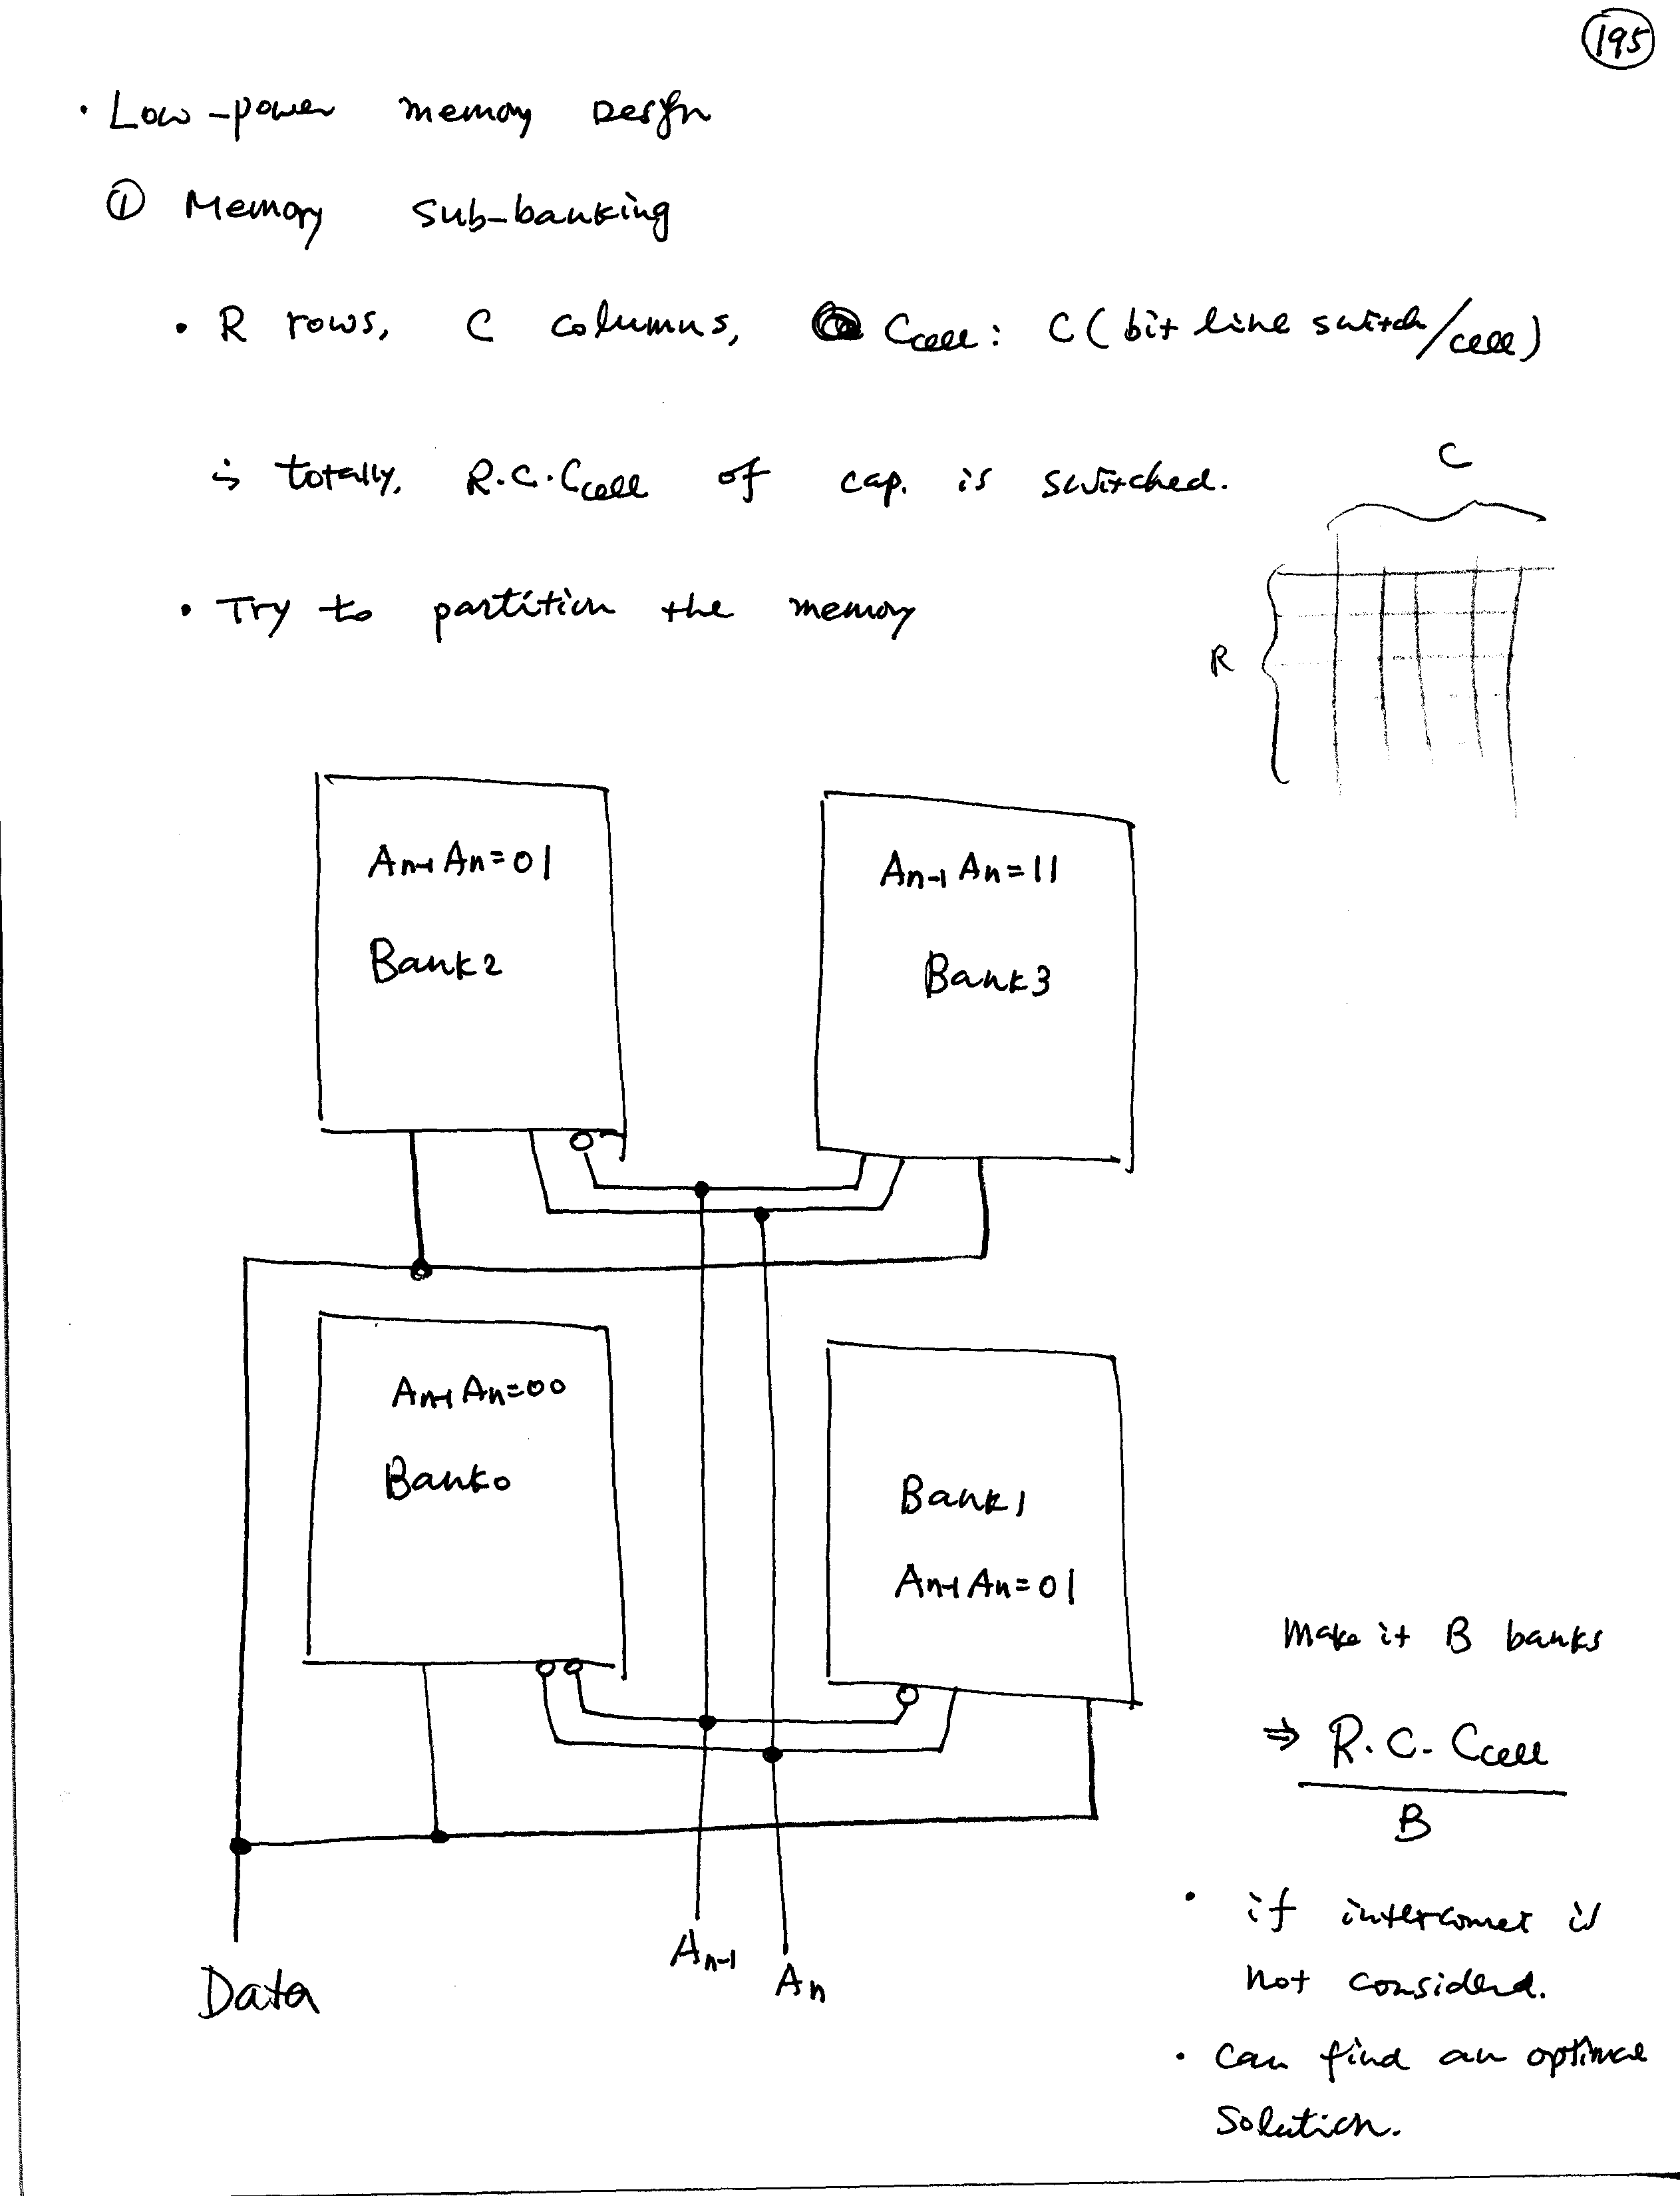 195
· Low-power memory Design
① Memory sub-banking
· R rows, C columns, Ccell: C (bit line switch/cell)
totally, R.C.Ccell of cap. is switched.
C
· Try to partition the memory
R
An-1 An=01
Bank2
An-1 An=11
Bank3
An-1 An=00
Bank0
Bank1
An-1 An=01
Make it B banks
⇒ R.C.Ccell
B
· if interconnet is
not considerd.
An-1
An
Data
· Can find an optimal
Solution.